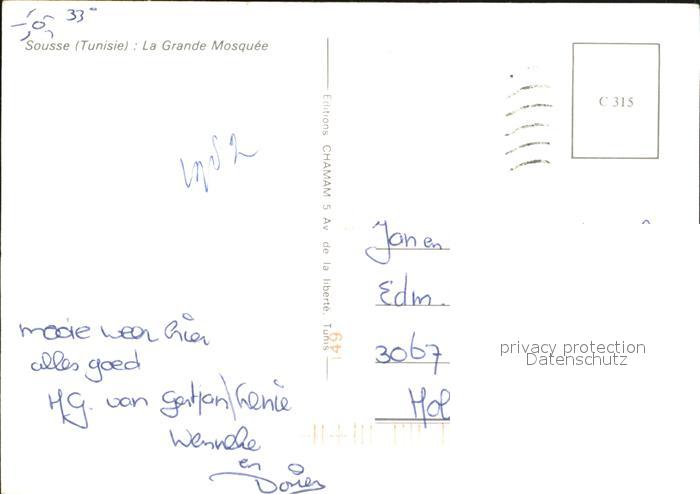 33°
Sousse (Tunisie) : La Grande Mosquée
Editions CHAMAM 5 Av de la liberté, Tunis
C 315
mooie weer hier
alles goed
H.G. van Gertjan\
Wenneke
en
Jan en
Edm.
3067
Hol
privacy protection
Datenschutz
49